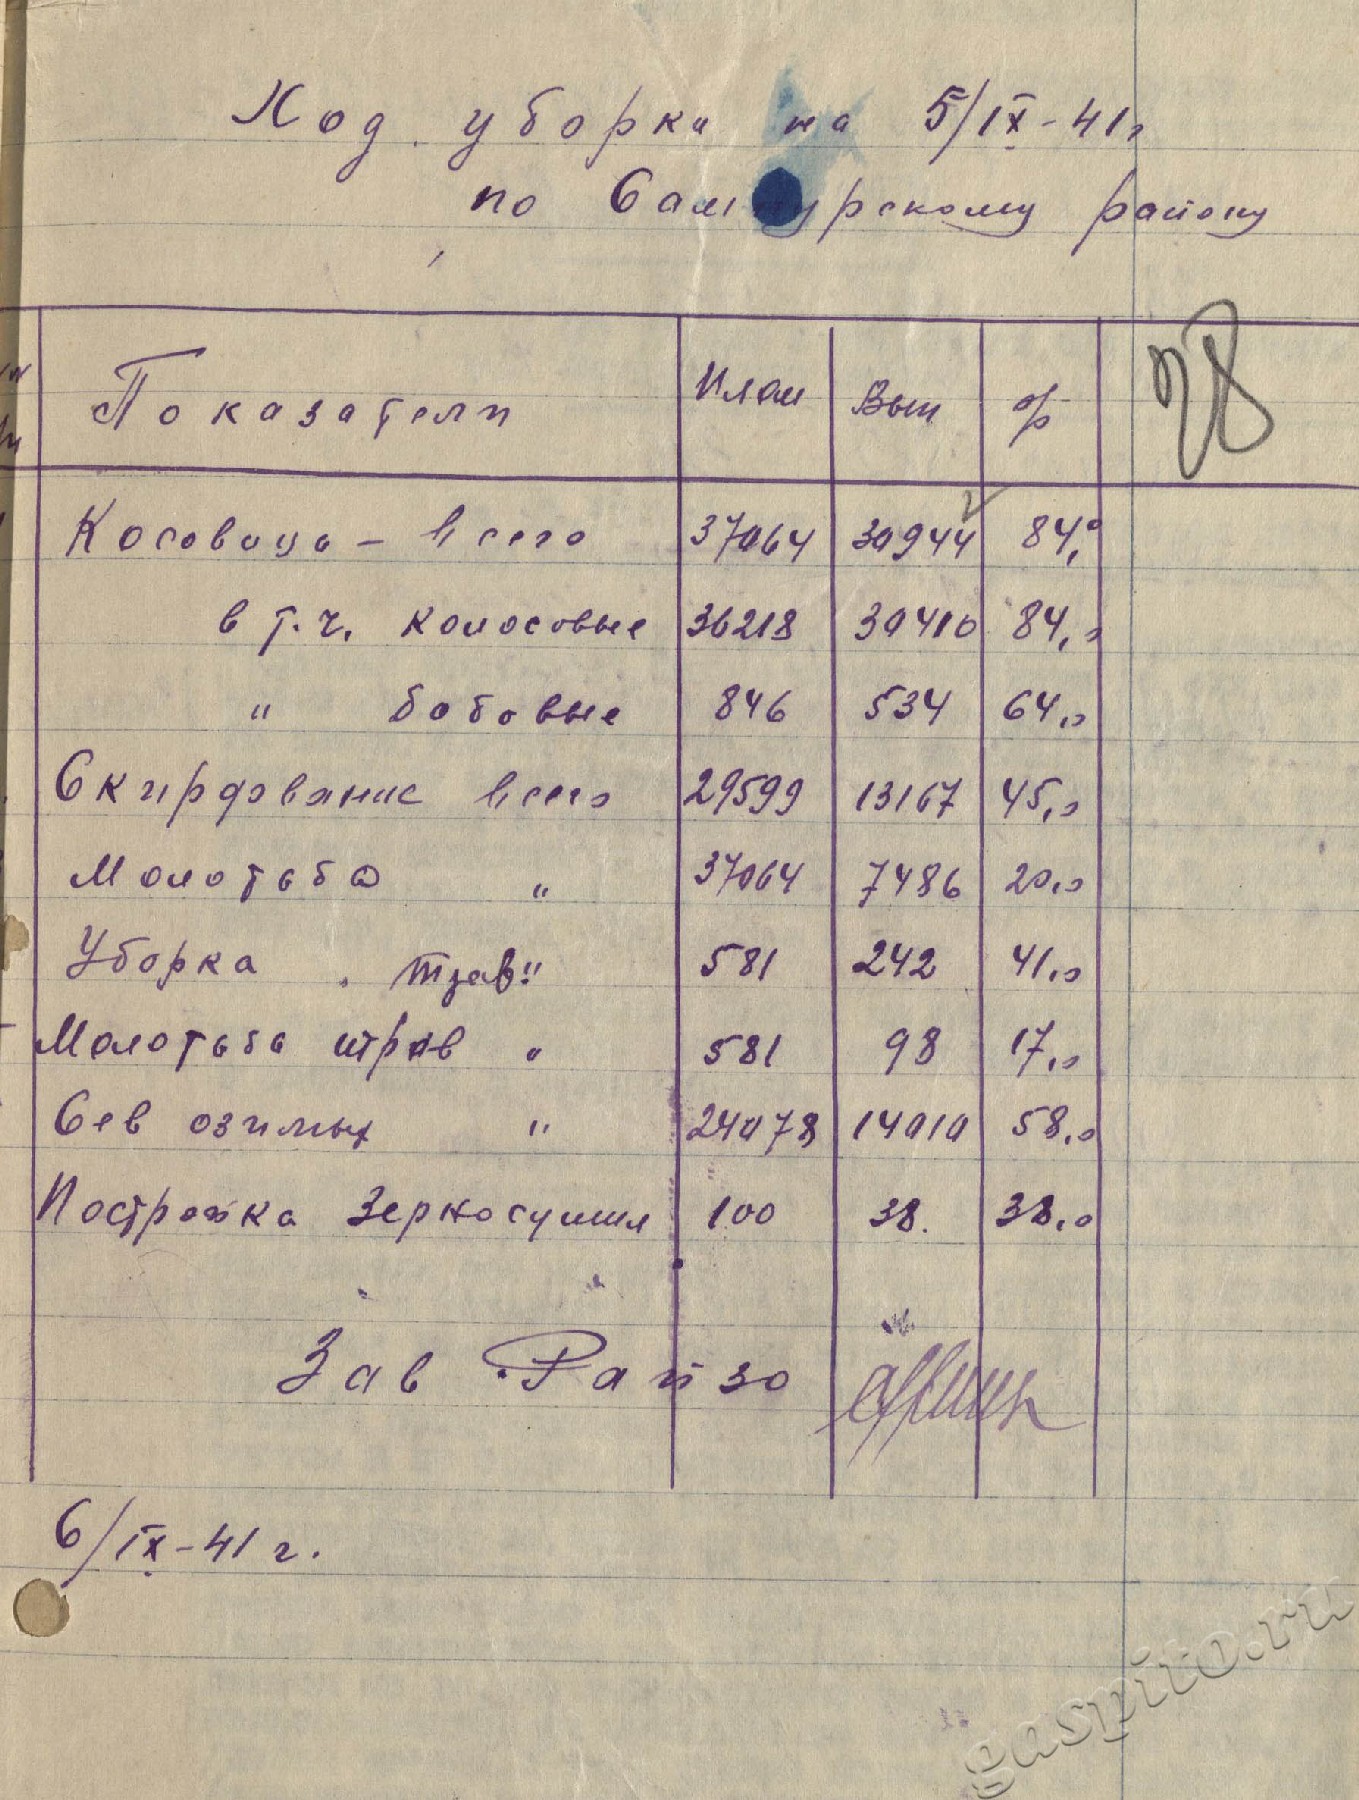 Ход уборки на 5/IX-41г
по Сампурскому району
28
Показатели План Вып %
Косовица - всего 37064 30944 84,0
в т.ч. колосовые 36218 30410 84,0
" бобовые 846 534 64,0
Скирдование всего 29599 13167 45,0
Молотьба " 37064 7486 20,0
Уборка трав " 581 242 41,0
Молотьба трав " 581 98 17,0
Сев озимых " 24078 14010 58,0
Постройка зерносушил 100 38. 38,0
Зав Райзо
6/IX-41 г.
gaspito.ru